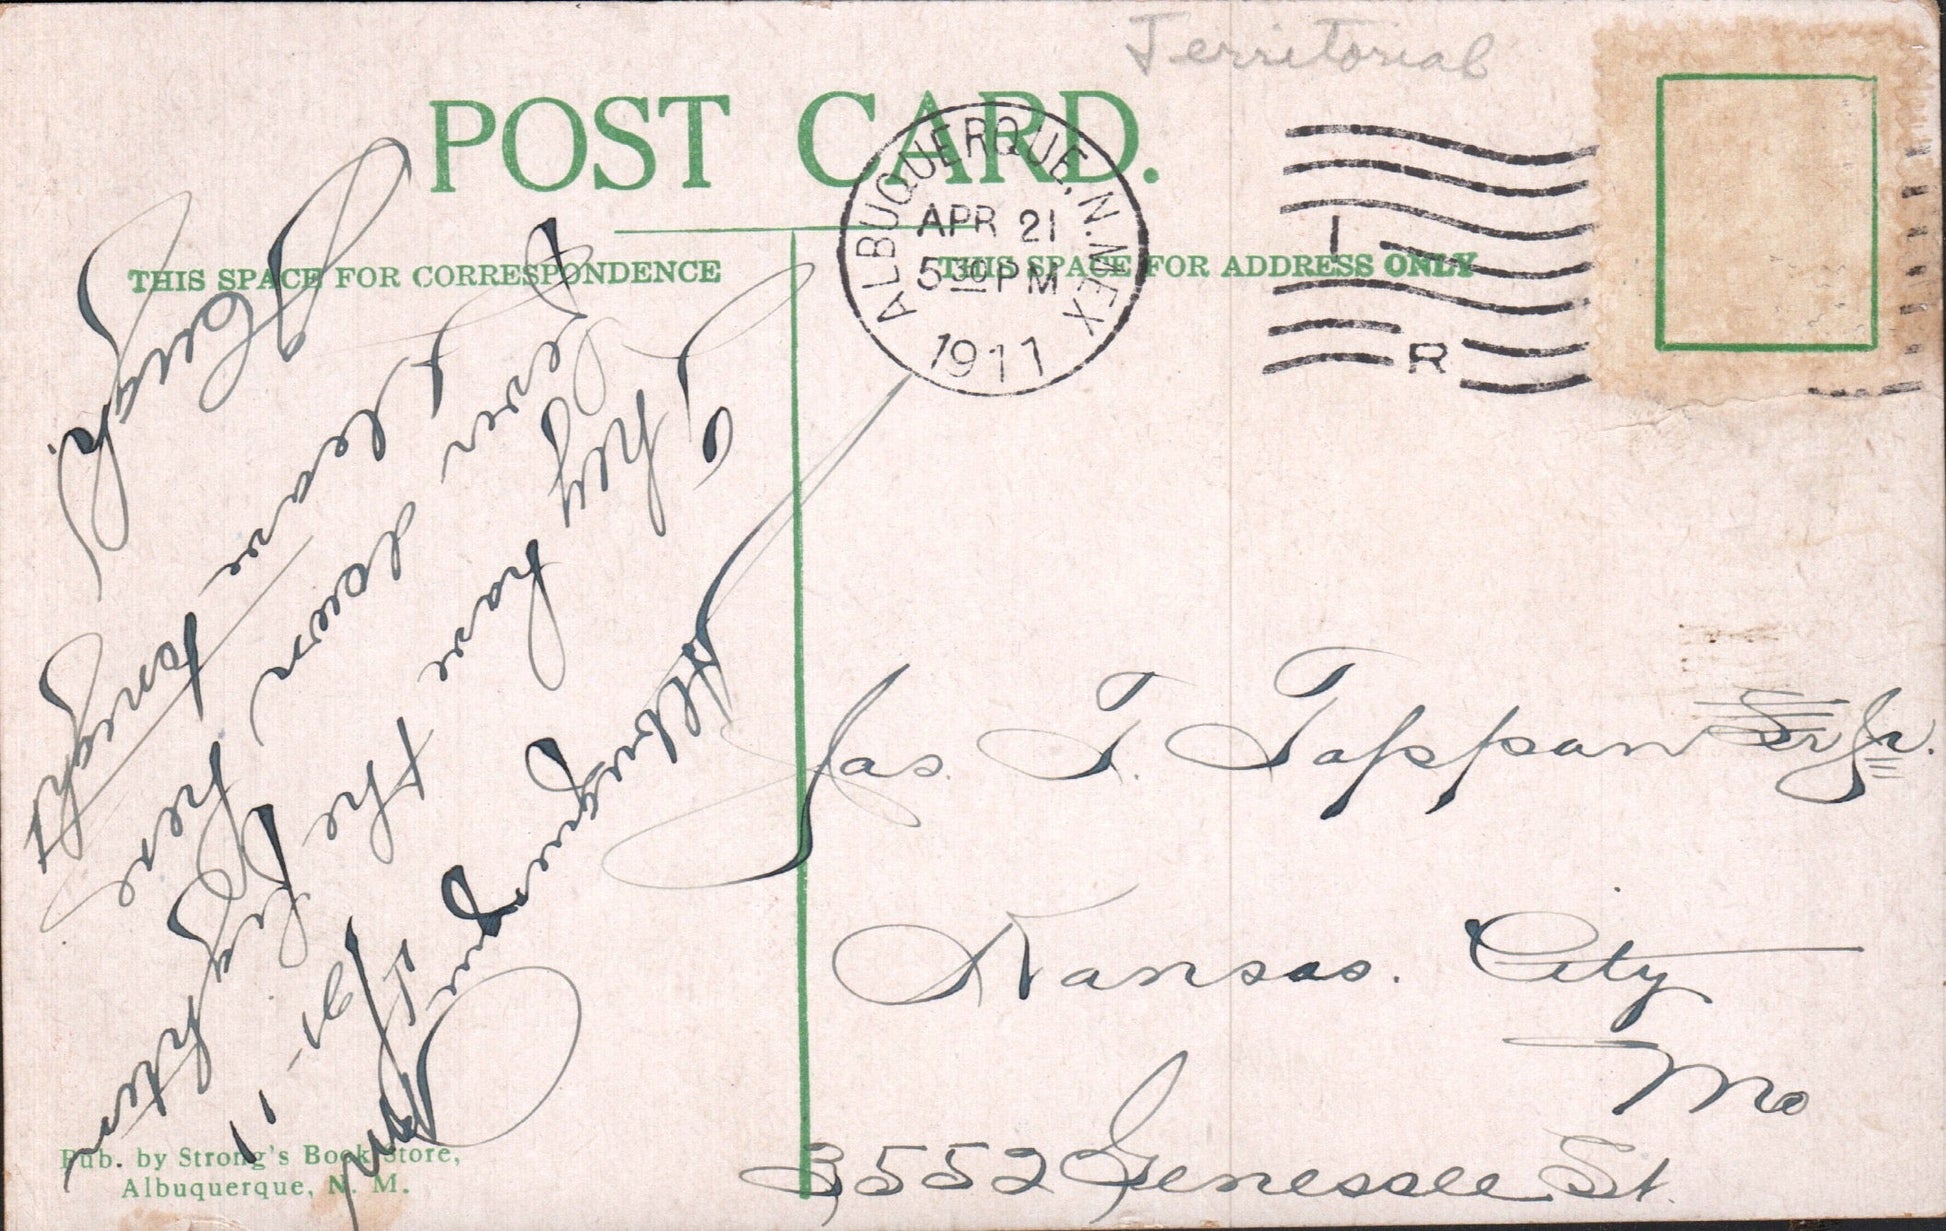 Territorial
POST CARD.
ALBUQUERQUE, N. MEX
APR 21
5 30 PM
1911
1
R
THIS SPACE FOR CORRESPONDENCE
THIS SPACE FOR ADDRESS ONLY
Albuquerque
21-11
They have the
fever down here
Leave tonight
Jas. T. Tappan Sr Jr.
Kansas. City
Mo
3552 Genessee St.
Pub. by Strong's Book Store,
Albuquerque, N. M.